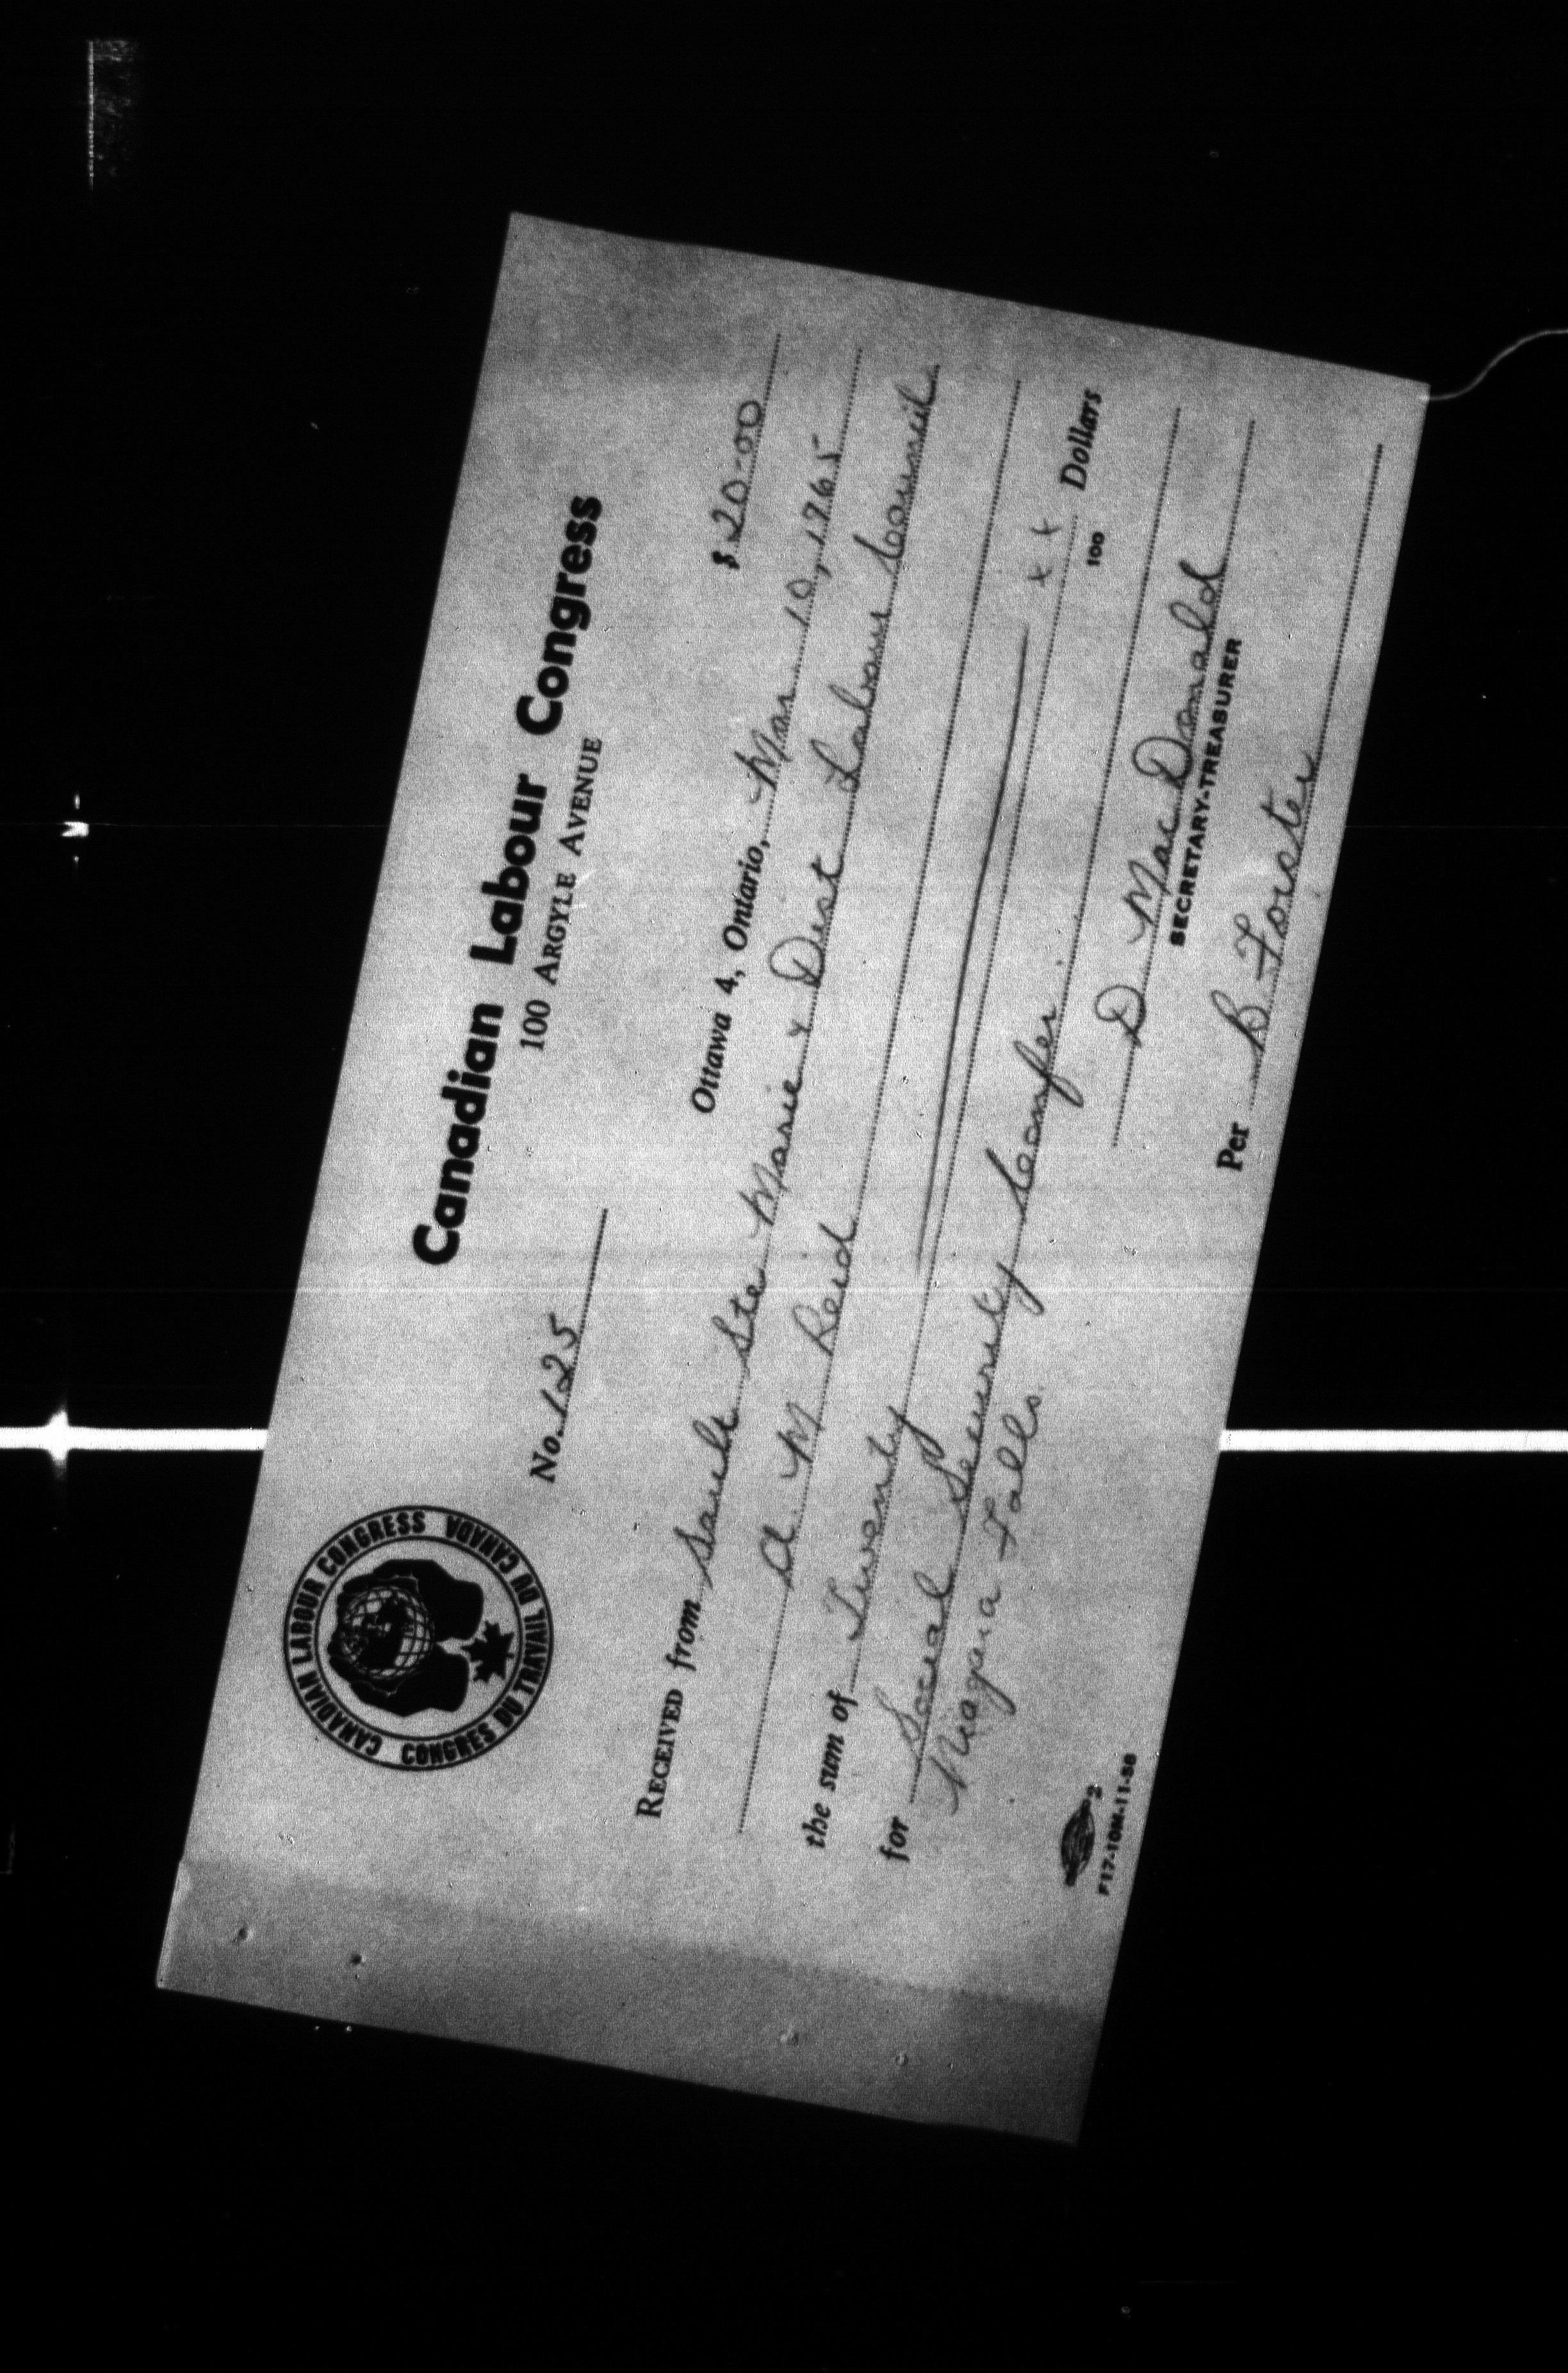 Canadian Labour Congress
100 ARGYLE AVENUE
CANADIAN LABOUR CONGRESS
CONGRES DU TRAVAIL DU CANADA
No. 125
$ 20.00
Ottawa 4, Ontario, Mar 10, 1965
RECEIVED from Sault Ste Marie & Dist Labour Council
A. M Reid
the sum of Twenty xx/100 Dollars
for Social Security Confer.
Niagara Falls
D Mac Donald
SECRETARY-TREASURER
Per B Forster
2
F17-10M-11-58